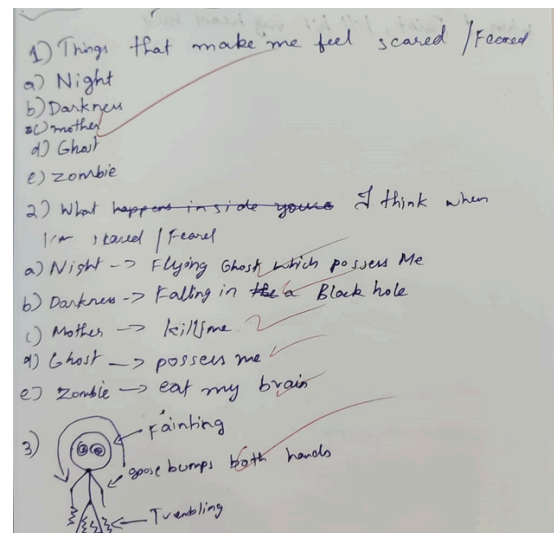 1) Things that make me feel scared / Feared
a) Night
b) Darkness
c) mother
d) Ghost
e) zombie
2) What happens inside youre I think when
I'm scared / Feared
a) Night -> Flying Ghost which possess Me
b) Darkness -> Falling in the a Black hole
c) Mother -> kills me
d) Ghost -> possess me
e) Zombie -> eat my brain
3)
Fainting
goose bumps both hands
Trembling